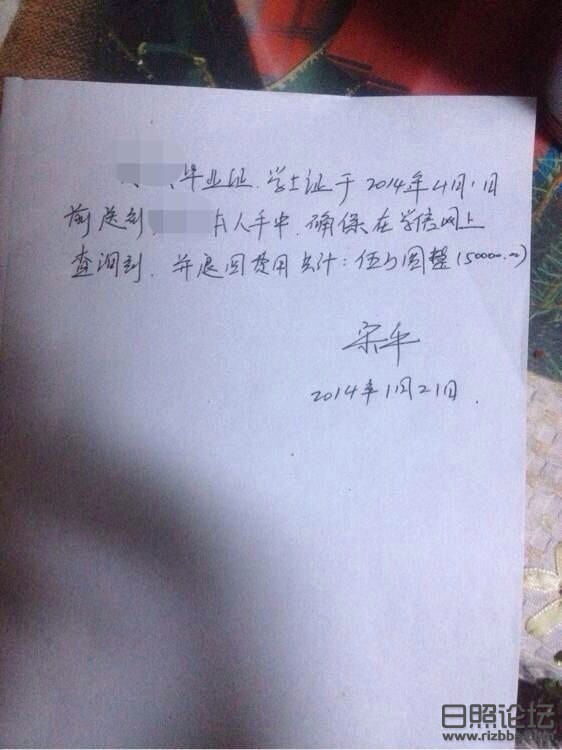 毕业证、学士证于2014年4月1日
前送到 本人手中,确保在学信网上
查询到,并退回费用共计:伍万圆整(50000.00)
宋平
2014年1月21日.
日照论坛
www.rizbbs.com